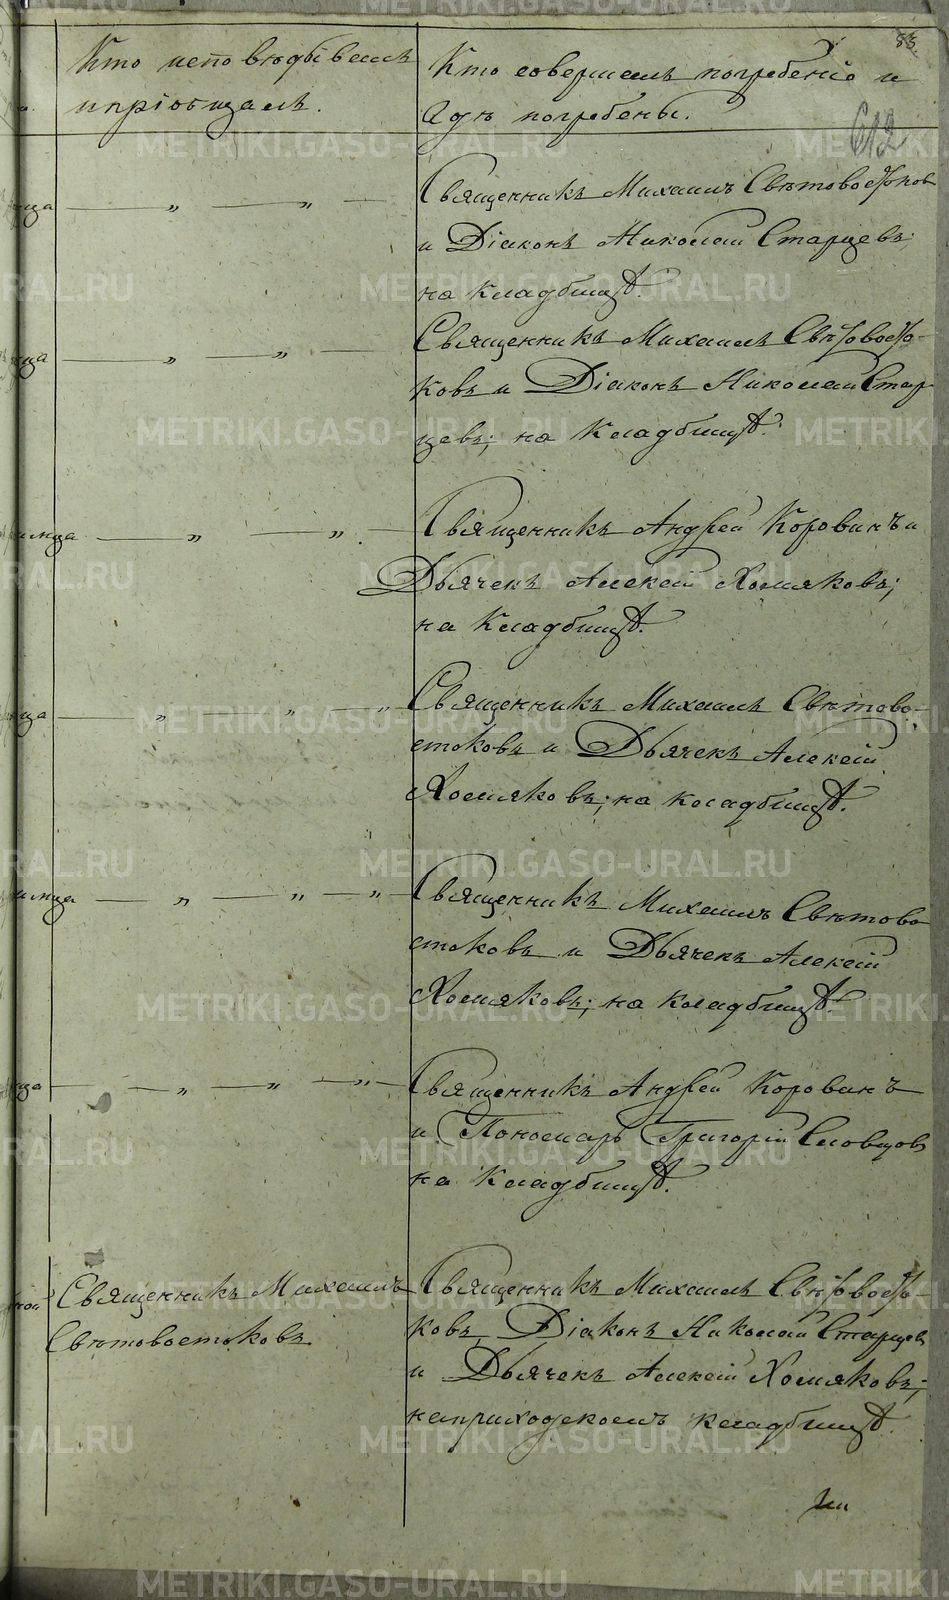 83.
Кто исповѣдывалъ
и пріобщалъ.
Кто совершалъ погребеніе и
гдѣ погребены.
612
ца — „ — „ —
Священникъ Михаилъ Свѣтовостоков
и Діаконъ Николай Старцевъ;
на кладбищѣ.
ца — „ — „ —
Священникъ Михаилъ Свѣтовосто-
ковъ и Діаконъ Николай Стар
цевъ; на кладбищѣ.
мца — „ — „ —
Священникъ Андрей Коровинъ и
Дьячекъ Алексѣй Хомяковъ;
на кладбищѣ.
ца — „ — „ — „
Священникъ Михаилъ Свѣтово-
стоковъ и Дьячекъ Алексѣй
Хомяковъ; на кладбищѣ.
мца — „ — „ — „
Священникъ Михаилъ Свѣтово
стоковъ и Дьячекъ Алексѣй
Хомяковъ; на кладбищѣ.
ца — „ — „ — „ —
Священникъ Андрей Коровинъ
и Пономарь Григорій Словцов
на кладбищѣ.
ной
Священникъ Михаилъ
Свѣтовостоковъ
Священникъ Михаилъ Свѣтовосто-
ковъ, Діаконъ Николай Старцев
и Дьячекъ Алексѣй Хомяковъ;
на приходскомъ кладбищѣ.
METRIKI.GASO-URAL.RU